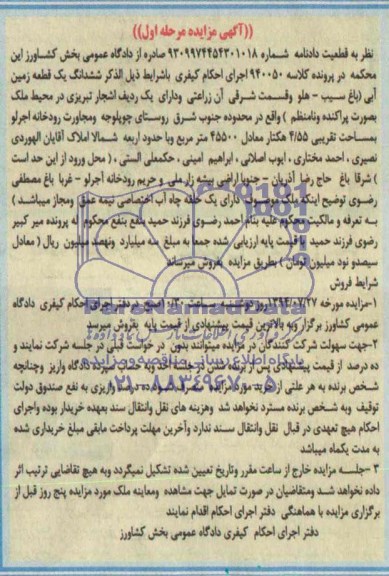 ((آگهی مزایده مرحله اول))
نظر به قطعیت دادنامه شماره ۹۳۰۹۹۷۴۴۵۴۳۰۱۰۱۸ صادره از دادگاه عمومی بخش کشاورز این
محکمه در پرونده کلاسه ۹۴۰۰۵۰ اجرای احکام کیفری باشرایط ذیل الذکر ششدانگ یک قطعه زمین
آبی (باغ سیب - هلو وقسمت شرقی آن زراعتی ودارای یک ردیف اشجار تبریزی در محیط ملک
بصورت پراکنده ونامنظم ) واقع در محدوده جنوب شرق روستای چوپلوجه ومجاورت رودخانه آجرلو
بمساحت تقریبی ۴/۵۵ هکتار معادل ۴۵۵۰۰ متر مربع وبا حدود اربعه شمالا املاک آقایان الهوردی
نصیری ، احمد مختاری ، ایوب اصلانی ، ابراهیم امینی ، حکمعلی الستی ، ( محل ورود از این حد است
) شرقا باغ حاج رضا آذریان - جنوبا اراضی بیشه زار ملی و حریم رودخانه آجرلو - غربا باغ مصطفی
رضوی توضیح اینکه ملک موصوف دارای یک حلقه چاه آب اختصاصی نیمه عمق ومجاز میباشد )
به تعرفه و مالکیت محکوم علیه بنام احمد رضوی فرزند حمید بنفع محکوم له پرونده میر کبیر
رضوی فرزند حمید با قیمت پایه ارزیابی شده جمعا به مبلغ سه میلیارد ونهصد میلیون ریال ( معادل
سیصدو نود میلیون تومان ) بطریق مزایده بفروش میرساند
شرایط فروش
۱-مزایده مورخه ۱۳۹۴/۰۷/۲۷ روز دوشنبه ساعت ۱۰:۳۰ صبح در دفتر اجرای احکام کیفری دادگاه
عمومی کشاورز برگزار وبه بالاترین قیمت پیشنهادی از قیمت پایه بفروش میرسد
۲-جهت سهولت شرکت کنندگان در مزایده میتوانند بدون در خواست قبلی در جلسه شرکت نمایند و
ده درصد از قیمت پیشنهادی پس از برنده شدن در جلسه اخذ وبه حساب سپرده دادگاه واریز وچنانچه
شخص برنده به هر علتی از خرید مورد مزایده منصرف شود ده درصد واریزی به نفع صندوق دولت
توقیف وبه شخص برنده مسترد نخواهد شد وهزینه های نقل وانتقال سند بعهده خریدار بوده واجرای
احکام هیچ تعهدی در قبال نقل وانتقال سند ندارد وآخرین مهلت پرداخت مابقی مبلغ خریداری شده
به مدت یکماه میباشد
۳-جلسه مزایده خارج از ساعت مقرر وتاریخ تعیین شده تشکیل نمیگردد وبه هیچ تقاضایی ترتیب اثر
داده نخواهد شد ومتقاضیان در صورت تمایل جهت مشاهده ومعاینه ملک مورد مزایده پنج روز قبل از
برگزاری مزایده با هماهنگی دفتر اجرای احکام اقدام نمایند
دفتر اجرای احکام کیفری دادگاه عمومی بخش کشاورز
ParsNamadData
پایگاه اطلاع رسانی مناقصه و مزایده
۰۲۱-۸۸۳۴۹۶۷۰-۵